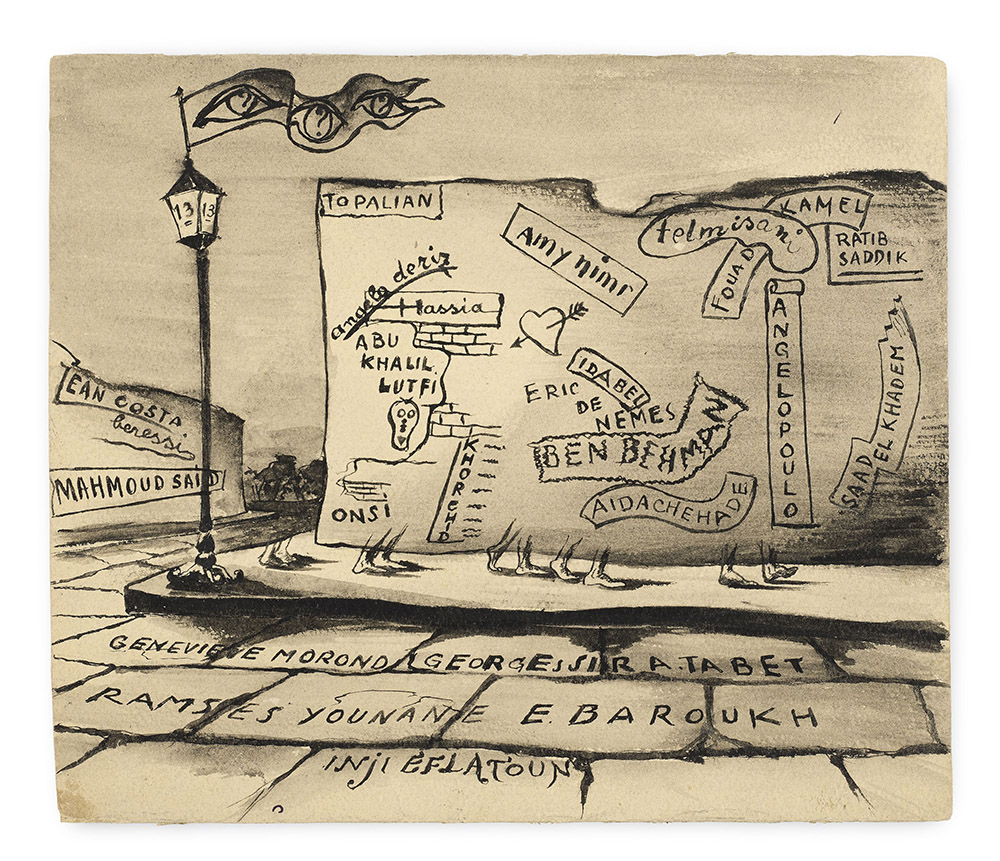 13 13
TOPALIAN
Amy nimr
telmisani
KAMEL
RATIB
SADDIK
FOUAD
angelo deriz
Hassia
ABU
KHALIL
LUTFI
IDABEL
ERIC
DE
NEMES
BEN BEHMAN
ANGELOPOULO
SAAD
EL KHADEM
KHORCHID
ONSI
AIDACHEHADE
EAN COSTA
beressi
MAHMOUD SAID
GENEVIEVE MOROND GEORGESSIRA.TABET
RAMSES YOUNANE E. BAROUKH
INJI EFLATOUN